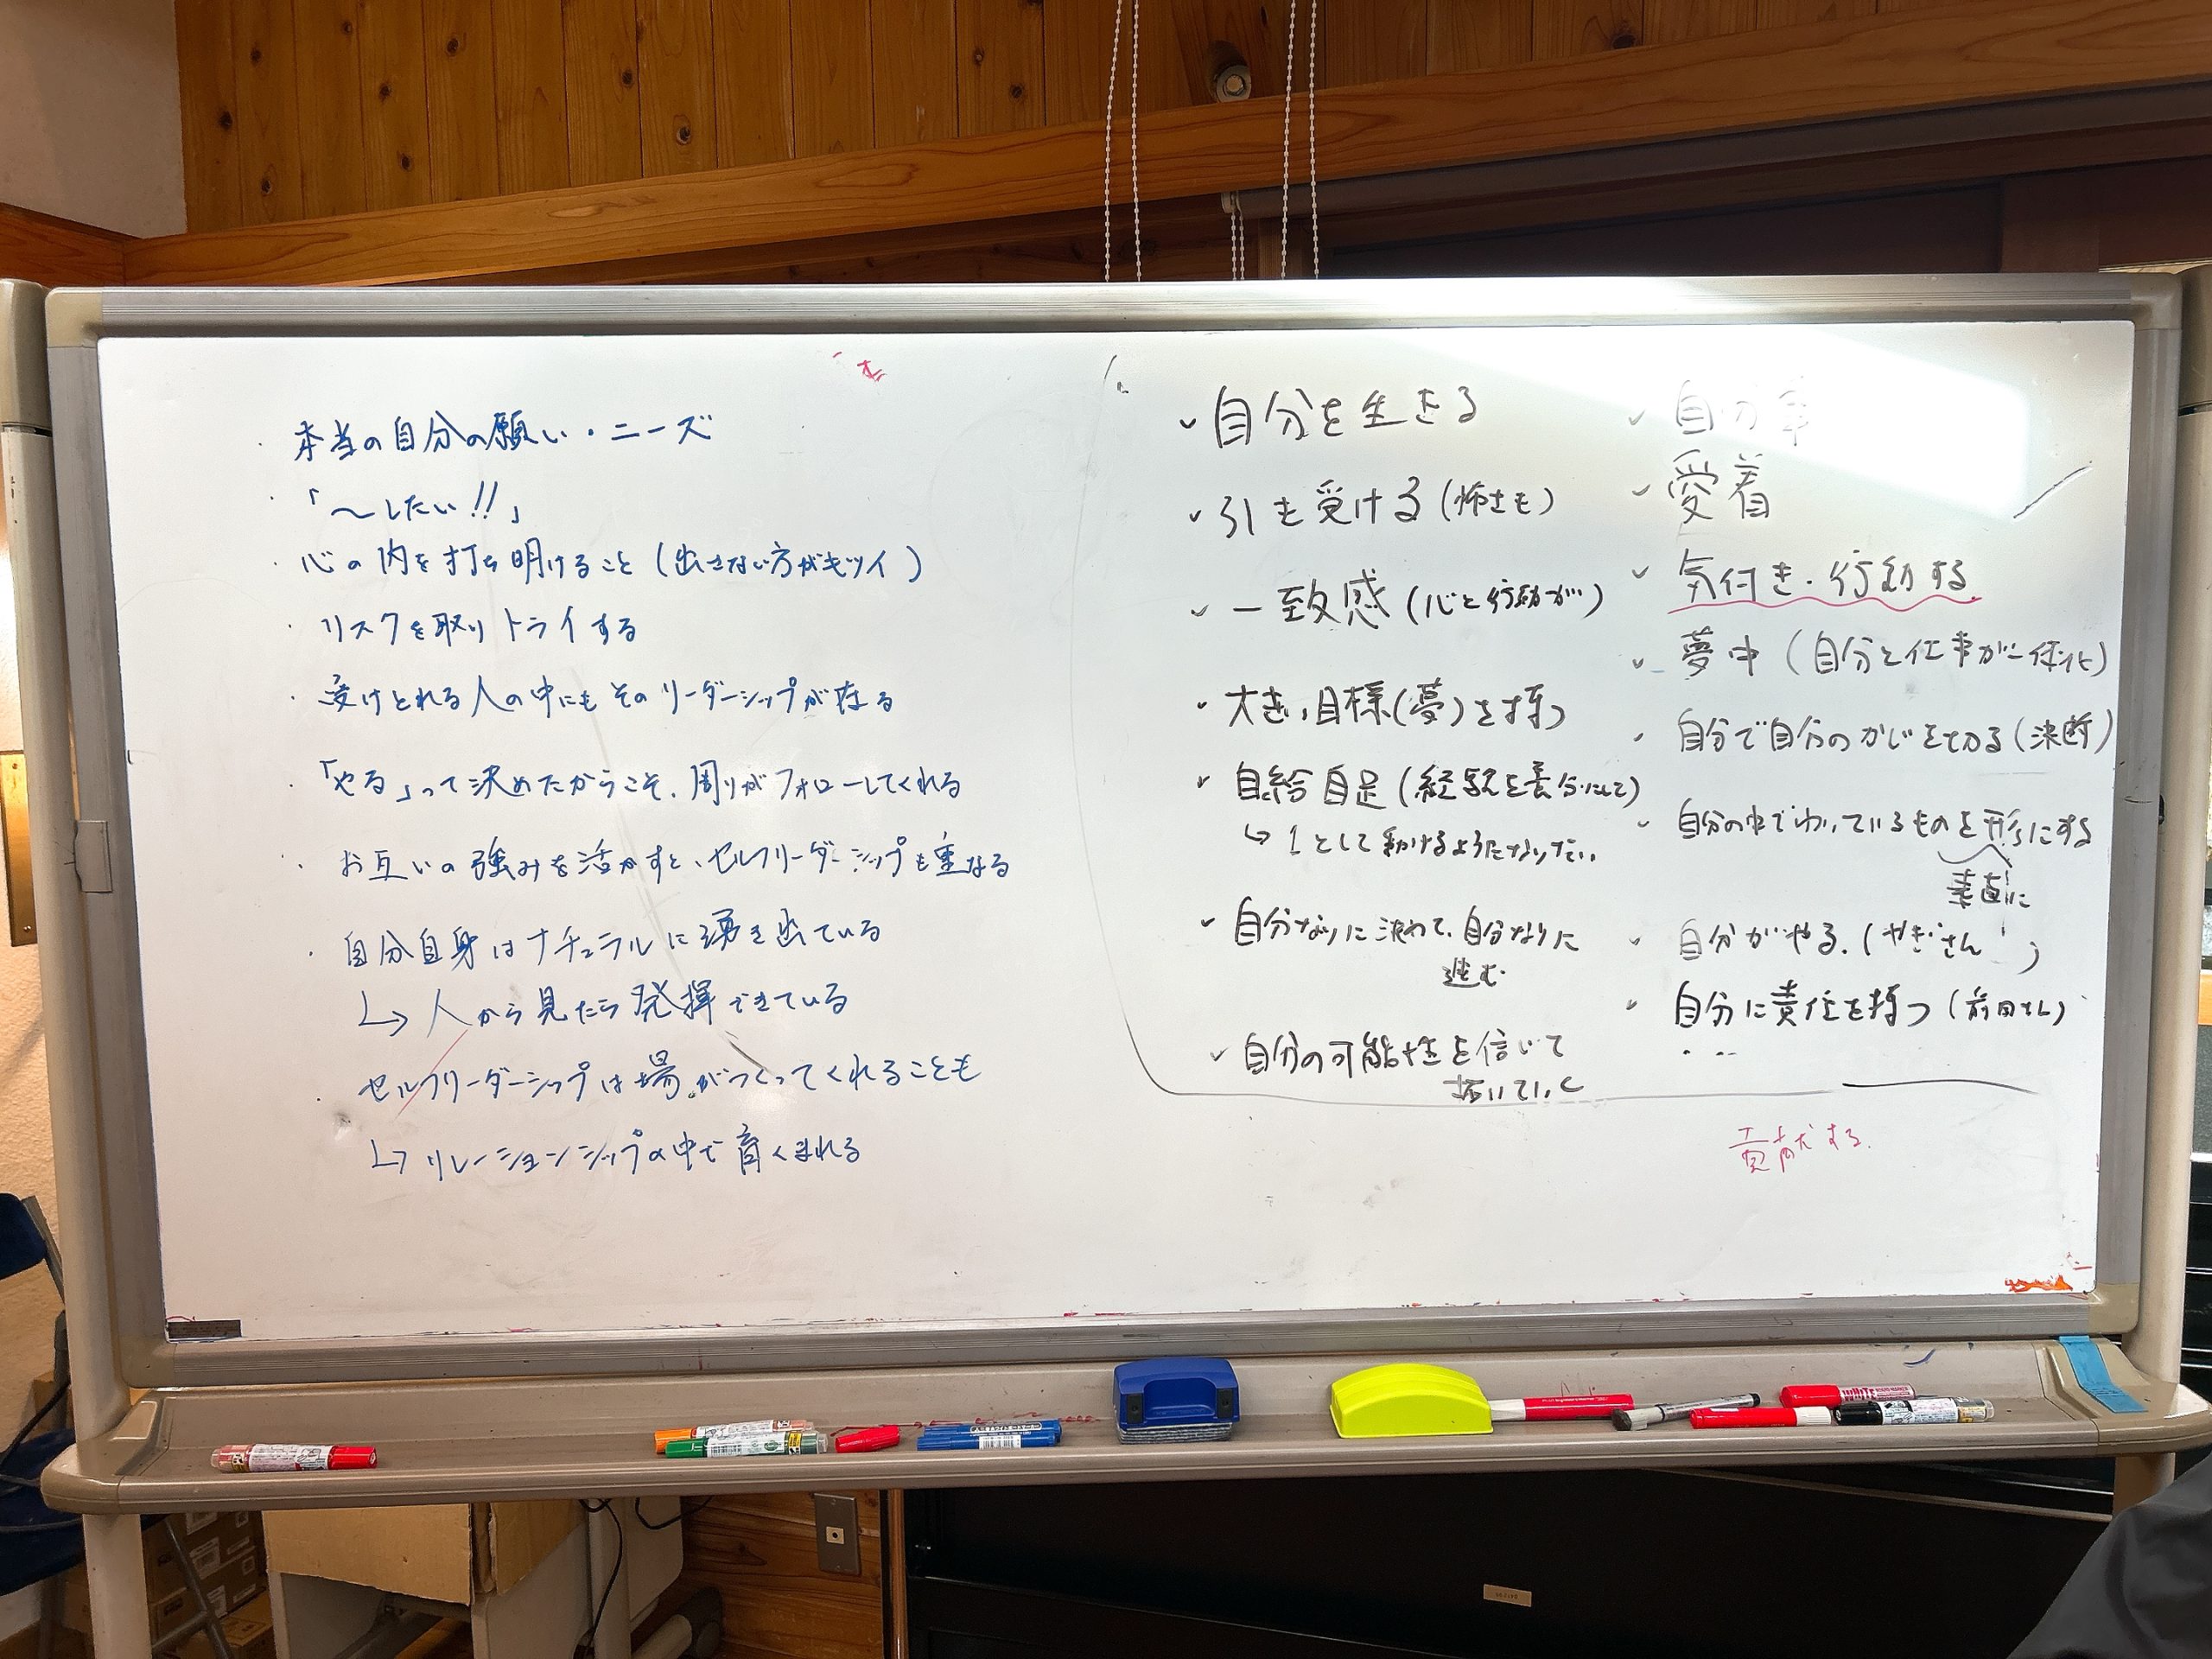 ・本当の自分の願い・ニーズ
・「〜したい!!」
・心の内を打ち明けること(出さない方がキツイ)
・リスクを取りトライする
・受けとれる人の中にもそのリーダーシップが在る
・「やる」って決めたからこそ、周りがフォローしてくれる
・お互いの強みを活かすと、セルフリーダーシップも重なる
・自分自身はナチュラルに湧き出ている
↳人から見たら発揮できている
・セルフリーダーシップは場がつくってくれることも
↳リレーションシップの中で育くまれる
✓自分を生きる
✓引き受ける(怖さも)
✓一致感(心と行動が)
✓大きい目標(夢)を持つ
✓自給自足(経験を養分にして)
↳1として動けるようになりたい
✓自分なりに決めて、自分なりに
進む
✓自分の可能性を信じて
拓いていく
✓自分
✓愛着
✓気付き・行動する
✓夢中(自分と仕事が一体化)
✓自分で自分のかじを切る(決断)
✓自分の中でわいているものを形にする
素直に
✓自分がやる.(やぎさん)
✓自分に責任を持つ(前田さん)
貢献する
WHITE